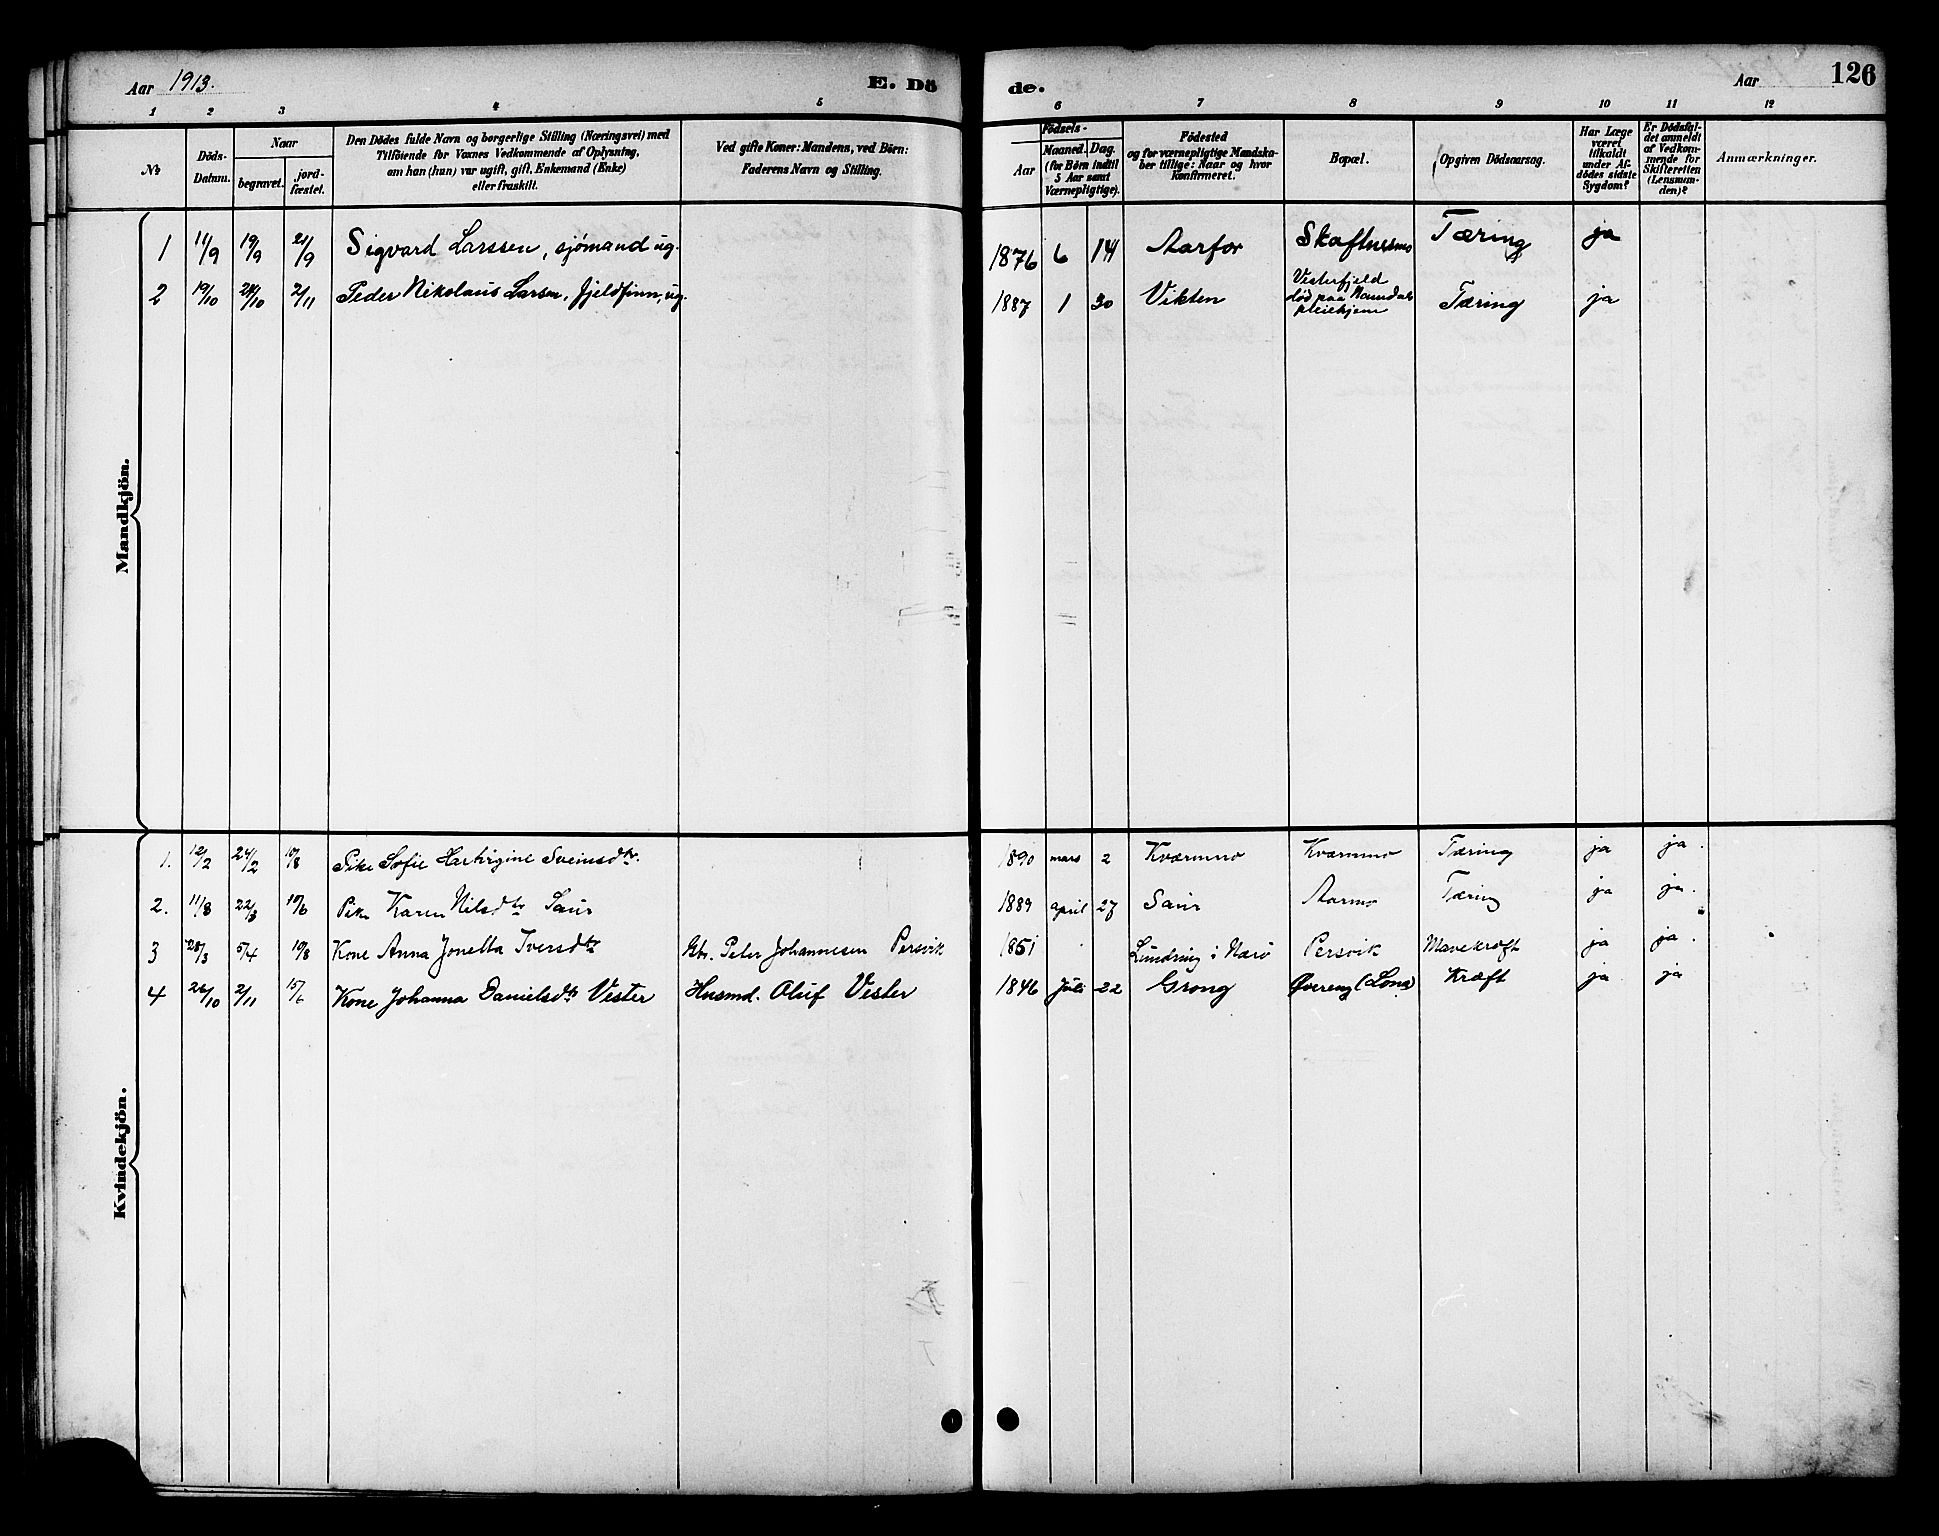 Aar 1913. E. Dö de. Aar 126
1 2 3 4 5 6 7 8 9 10 11 12
№
Döds-
Datum.
Naar
begravet.
jord-
fæstet.
Den Dödes fulde Navn og borgerlige Stilling (Næringsvei) med
Tilföiende for Voxnes Vedkommende af Oplysning,
om han (hun) var ugift, gift, Enkemand (Enke)
eller fraskilt.
Ved gifte Koner: Mandens, ved Börn:
Faderens Navn og Stilling.
Födsels-
Aar
Maaned. Dag.
(for Börn indtil
5 Aar samt
Værnepligtige).
Födested
og for værnepligtige Mandska-
ber tillige: Naar og hvor
Konfirmeret.
Bopæl.
Opgiven Dödsaarsag.
Har Læge
været
tilkaldt
under Af-
dödes sidste
Sygdom?
Er Dödsfal-
det anmeldt
af Vedkom-
mende for
Skifteretten
(Lensman-
den)?
Anmærkninger.
Mandkjön.
1 11/9 19/9 21/9 Sigvard Larssen, sjømand ug. 1876 6 14 Aarfor Skaftnesmo Tæring ja
2 19/10 24/10 2/11 Peder Nikolaus Larsen, fjeldfinn, ug. 1887 1 30 Vikten Vesterfjeld
død paa Namdals
pleiehjem Tæring ja
Kvindekjön.
1. 12/2 24/2 10/8 Pike Sofie Hartvigine Sveinsdtr. 1890 mars 2 Kværnmo Kværnmo Tæring ja ja.
2. 11/8 22/8 10/6 Pike Karen Nilsdtr Saur 1889 april 27 Saur Aarmo Tæring ja ja.
3 28/3 5/4 10/8 Kone Anna Jonetta Iversdtr Gbr. Peter Johannesen Persvik 1851 Lundring i Nærö Persvik Mavekræft ja ja.
4 26/10 2/11 15/6 Kone Johanna Danielsdtr Vester Husmd. Oluf Vester 1846 Juli 22 Grong Øvereng (Lona) Kræft ja ja